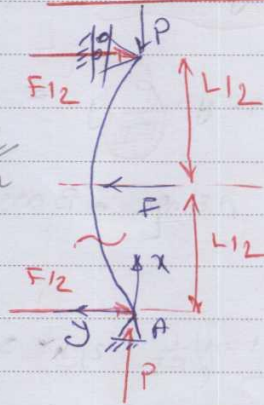 P
F/2
L/2
F
L/2
F/2
x
y
A
P